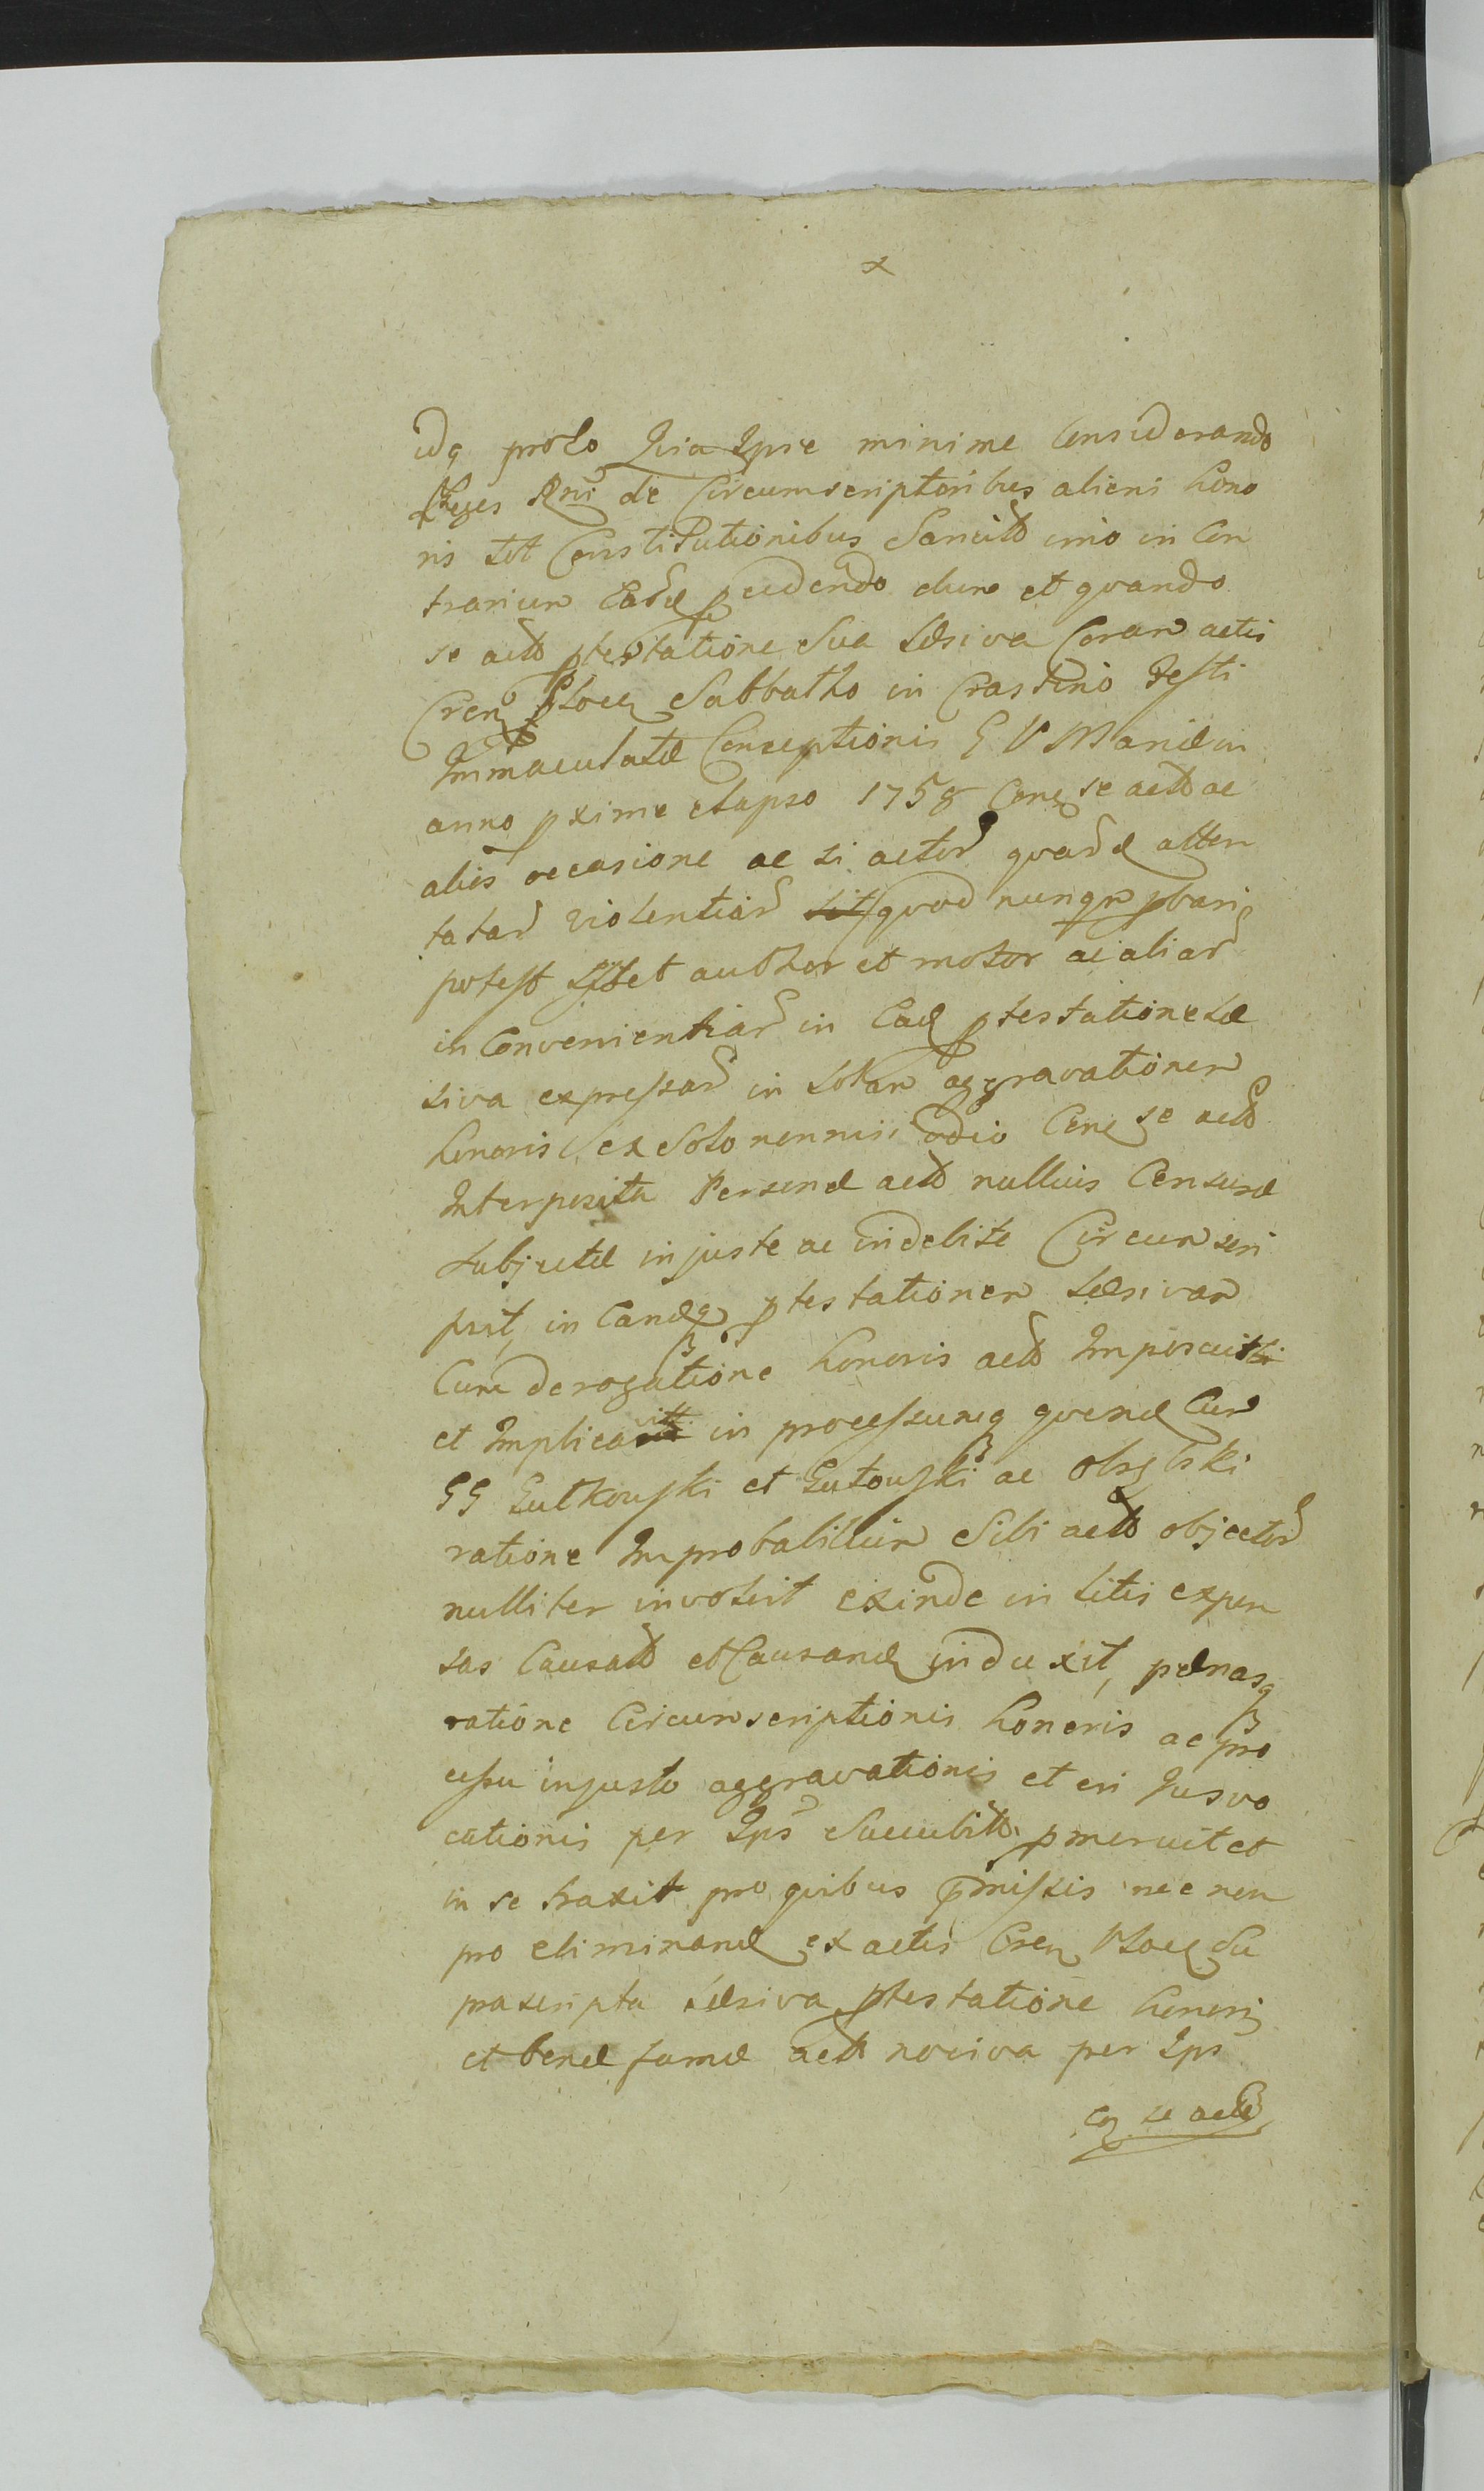 x
idq proto Quia Ipse minime Considerando
Leges Rni de Circumscriptoribus alieni hono
ris tot Constitutionibus Sancitt imo in Con
trarium Eard pcedendo dum et quando
se actt ptestatione Sua læsiva Coram actis
Cren Ploc Sabbatho in Crastino Festi
Immaculatæ Conceptionis G V Mariæ in
anno pxime elapso 1758 Con se actt ac
aliis occasione ac si actor quard atten
tatar violentiar quod nunqm pbari
potest author et motor ac aliar
inConvenientiar in Ead ptestatione læ
siva expressar in totam aggravationem
honoris ex Solo nonnisi odio Con se actt
Interposita Personæ actt nullius Censuræ
Subjectæ injuste ac indebite Circumscri
psit, in Eandq ptestationem læsivam
Cum derogatione honoris actt Imposuit
et Implicavitt in processumq quend Cum
GG Gutkowski et Gutowski ac
ratione Improbabilium Sibi actt objector
nulliter involvit exinde in litis expen
sas Causatt et Causand induxit, pænasq
ratione Circumscriptionis honoris ac pro
cessu injusto aggravationis et in Jusvo
cationis per Ips Succubitt pmeruit et
in se traxit pro quibus pmissis nec non
pro eliminand ex actis Cren Ploc Su
prascripta læsiva ptestatione honori
et bonæ famæ actt nociva per Ips
Con se actt